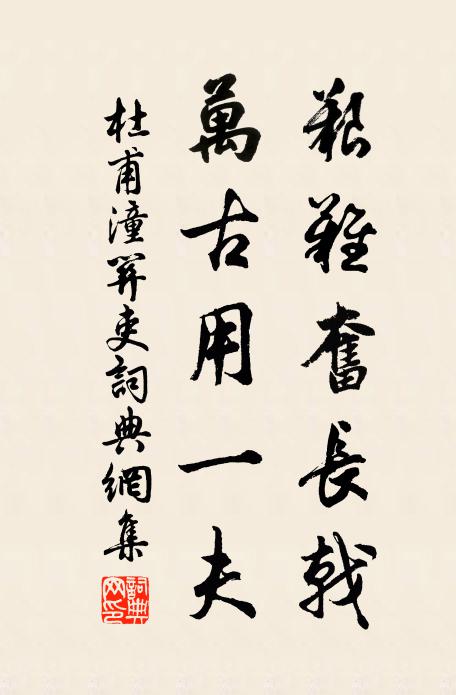 艱難奮長戟
萬古用一夫
杜甫潼關吏詞典網集
詞典網印